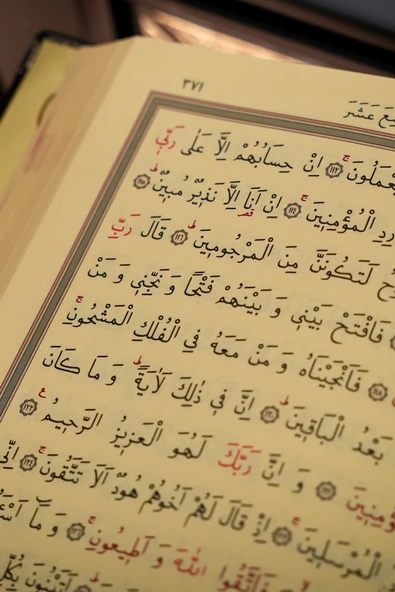 ٣٧١
عَ عَشَرَ
يَعْمَلُونَ ﴿١١٢﴾ اِنْ حِسَابُهُمْ اِلَّا عَلٰى رَبّ۪ي
رِدِ الْمُؤْمِن۪ينَ ﴿١١٤﴾ اِنْ اَنَا اِلَّا نَذ۪يرٌ مُب۪ينٌ ﴿١١٥﴾
حُ لَتَكُونَنَّ مِنَ الْمَرْجُوم۪ينَ ﴿١١٦﴾ قَالَ رَبِّ
فَافْتَحْ بَيْن۪ي وَ بَيْنَهُمْ فَتْحًا وَ نَجِّن۪ي وَ مَنْ
فَاَنْجَيْنَاهُ وَ مَنْ مَعَهُ فِي الْفُلْكِ الْمَشْحُونِ
بَعْدُ الْبَاق۪ينَ ﴿١٢٠﴾ اِنَّ ف۪ي ذٰلِكَ لَاٰيَةً وَ مَا كَانَ
مُؤْمِن۪ينَ ﴿١٢١﴾ وَ اِنَّ رَبَّكَ لَهُوَ الْعَز۪يزُ الرَّح۪يمُ ﴿١٢٢﴾
الْمُرْسَل۪ينَ ﴿١٢٣﴾ اِذْ قَالَ لَهُمْ اَخُوهُمْ هُودٌ اَلَا تَتَّقُونَ ﴿١٢٤﴾ اِنّ۪ي
فَاتَّقُوا اللّٰهَ وَ اَط۪يعُونِ ﴿١٢٦﴾ وَ مَا
اَتَبْنُونَ بِكُلِّ